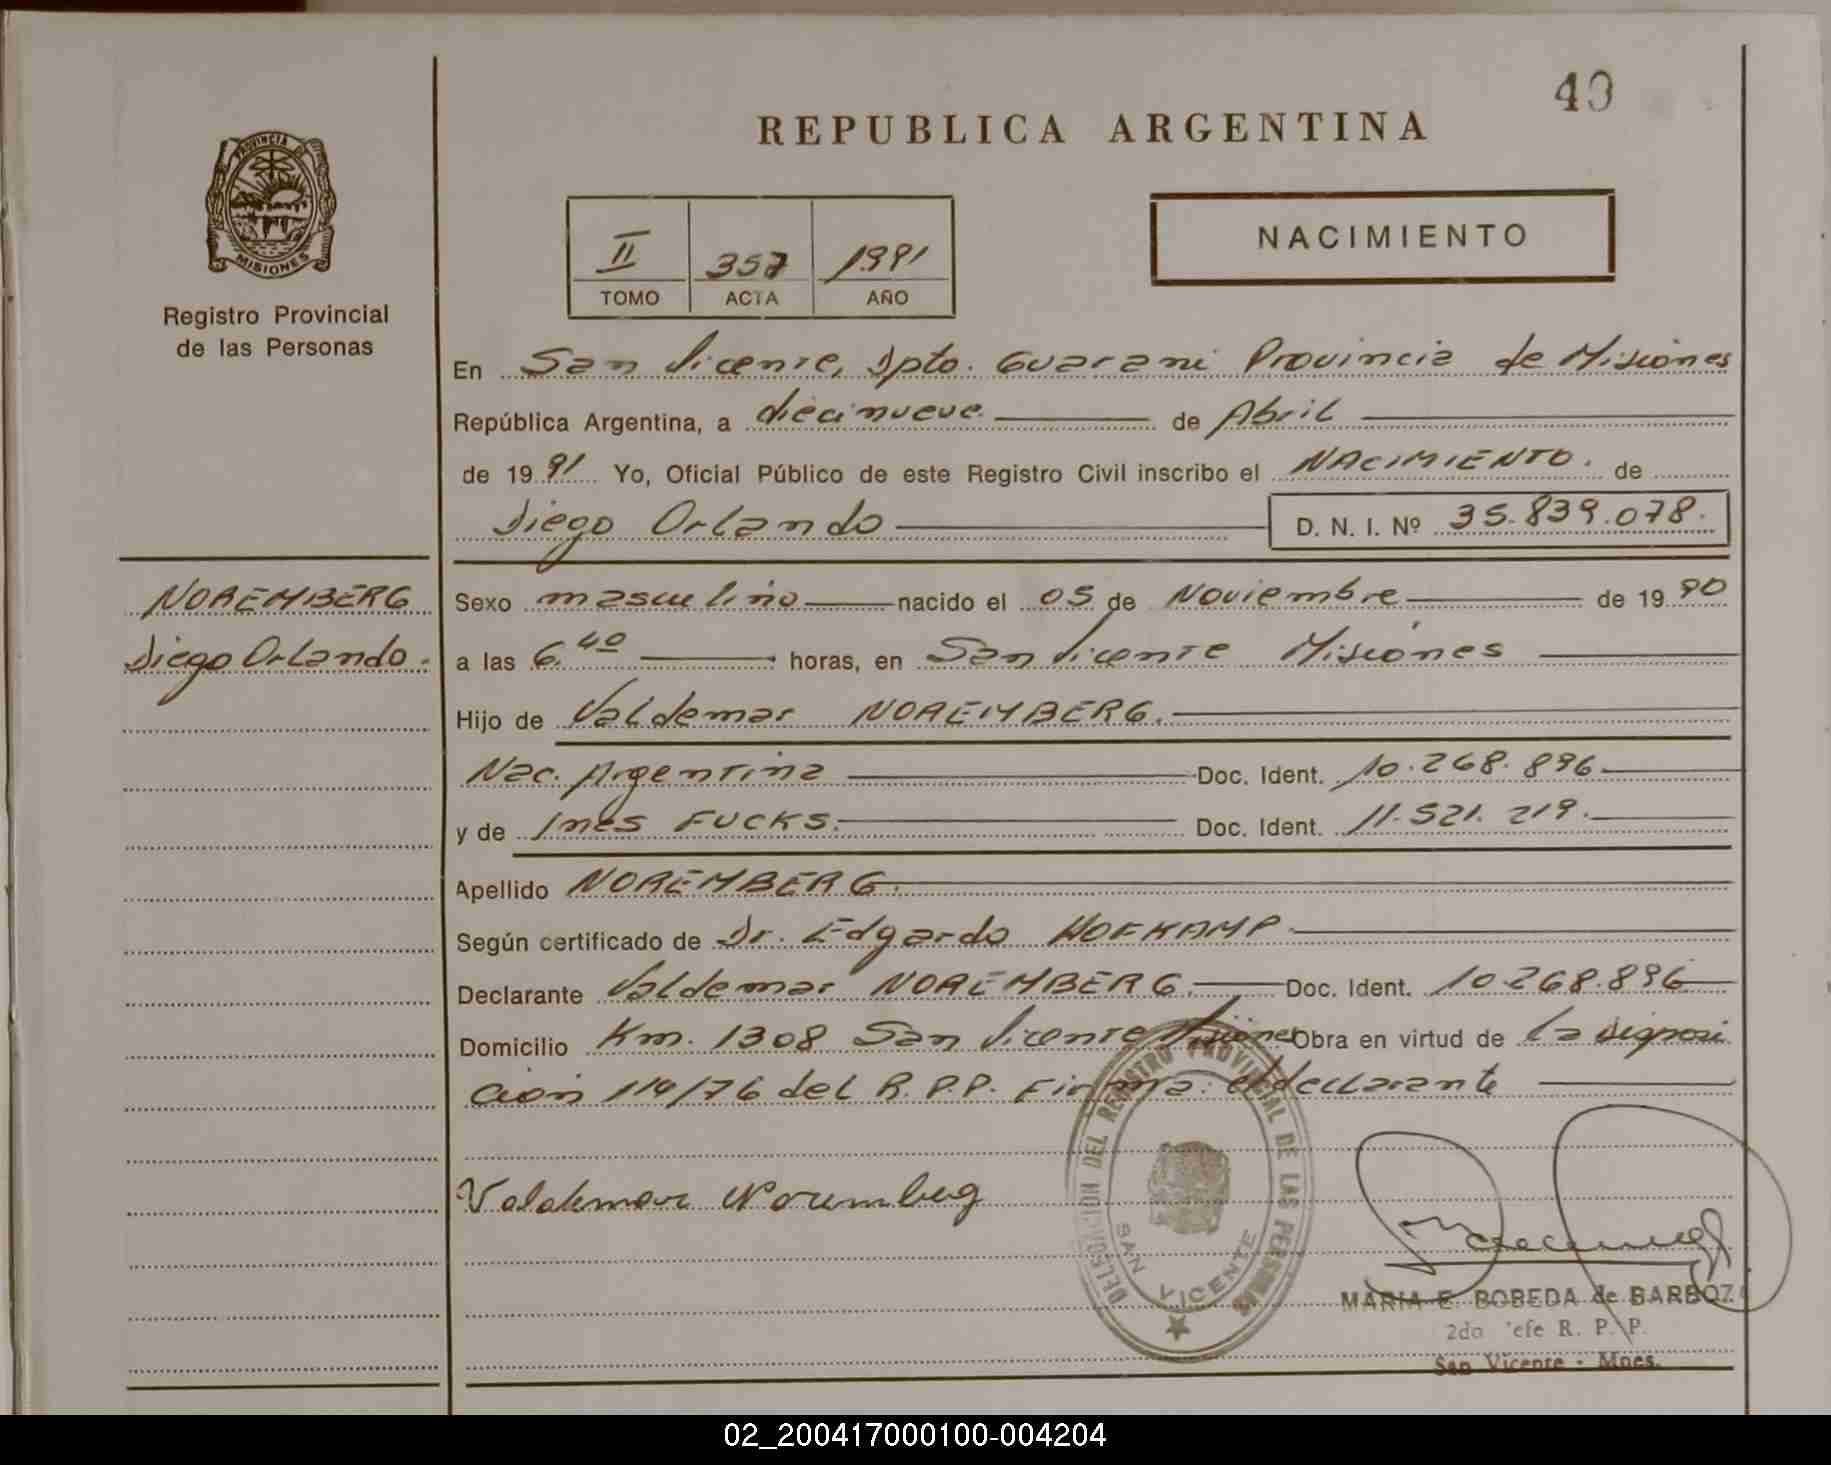 40
REPUBLICA ARGENTINA
PROVINCIA DE
MISIONES
Registro Provincial
de las Personas
II 357 1991
TOMO ACTA AÑO
NACIMIENTO
En San Vicente, Dpto. Guarani Provincia de Misiones
República Argentina, a diecinueve de Abril
de 1991 Yo, Oficial Público de este Registro Civil inscribo el NACIMIENTO. de
Diego Orlando D. N. I. Nº 35.839.078.
NOREMBERG
Diego Orlando.
Sexo masculino nacido el 05 de Noviembre de 1990
a las 6.40 horas, en San Vicente Misiones
Hijo de Valdemar NOREMBERG.
Nac. Argentina Doc. Ident. 10.268.896
y de Ines FUCKS. Doc. Ident. 11.521.219.
Apellido NOREMBERG.
Según certificado de Dr. Edgardo HOFKAMP
Declarante Valdemar NOREMBERG. Doc. Ident. 10.268.896
Domicilio Km. 1308 San Vicente Misiones Obra en virtud de la disposi
cion 114/76 del R.P.P. Firma: el declarante
Valdemar Noremberg
DEL REGISTRO PROVINCIAL DE LAS PERSONAS
SAN VICENTE
MARIA E. BOBEDA de BARBOZA
2do Jefe R. P. P.
San Vicente - Mnes.
02_200417000100-004204